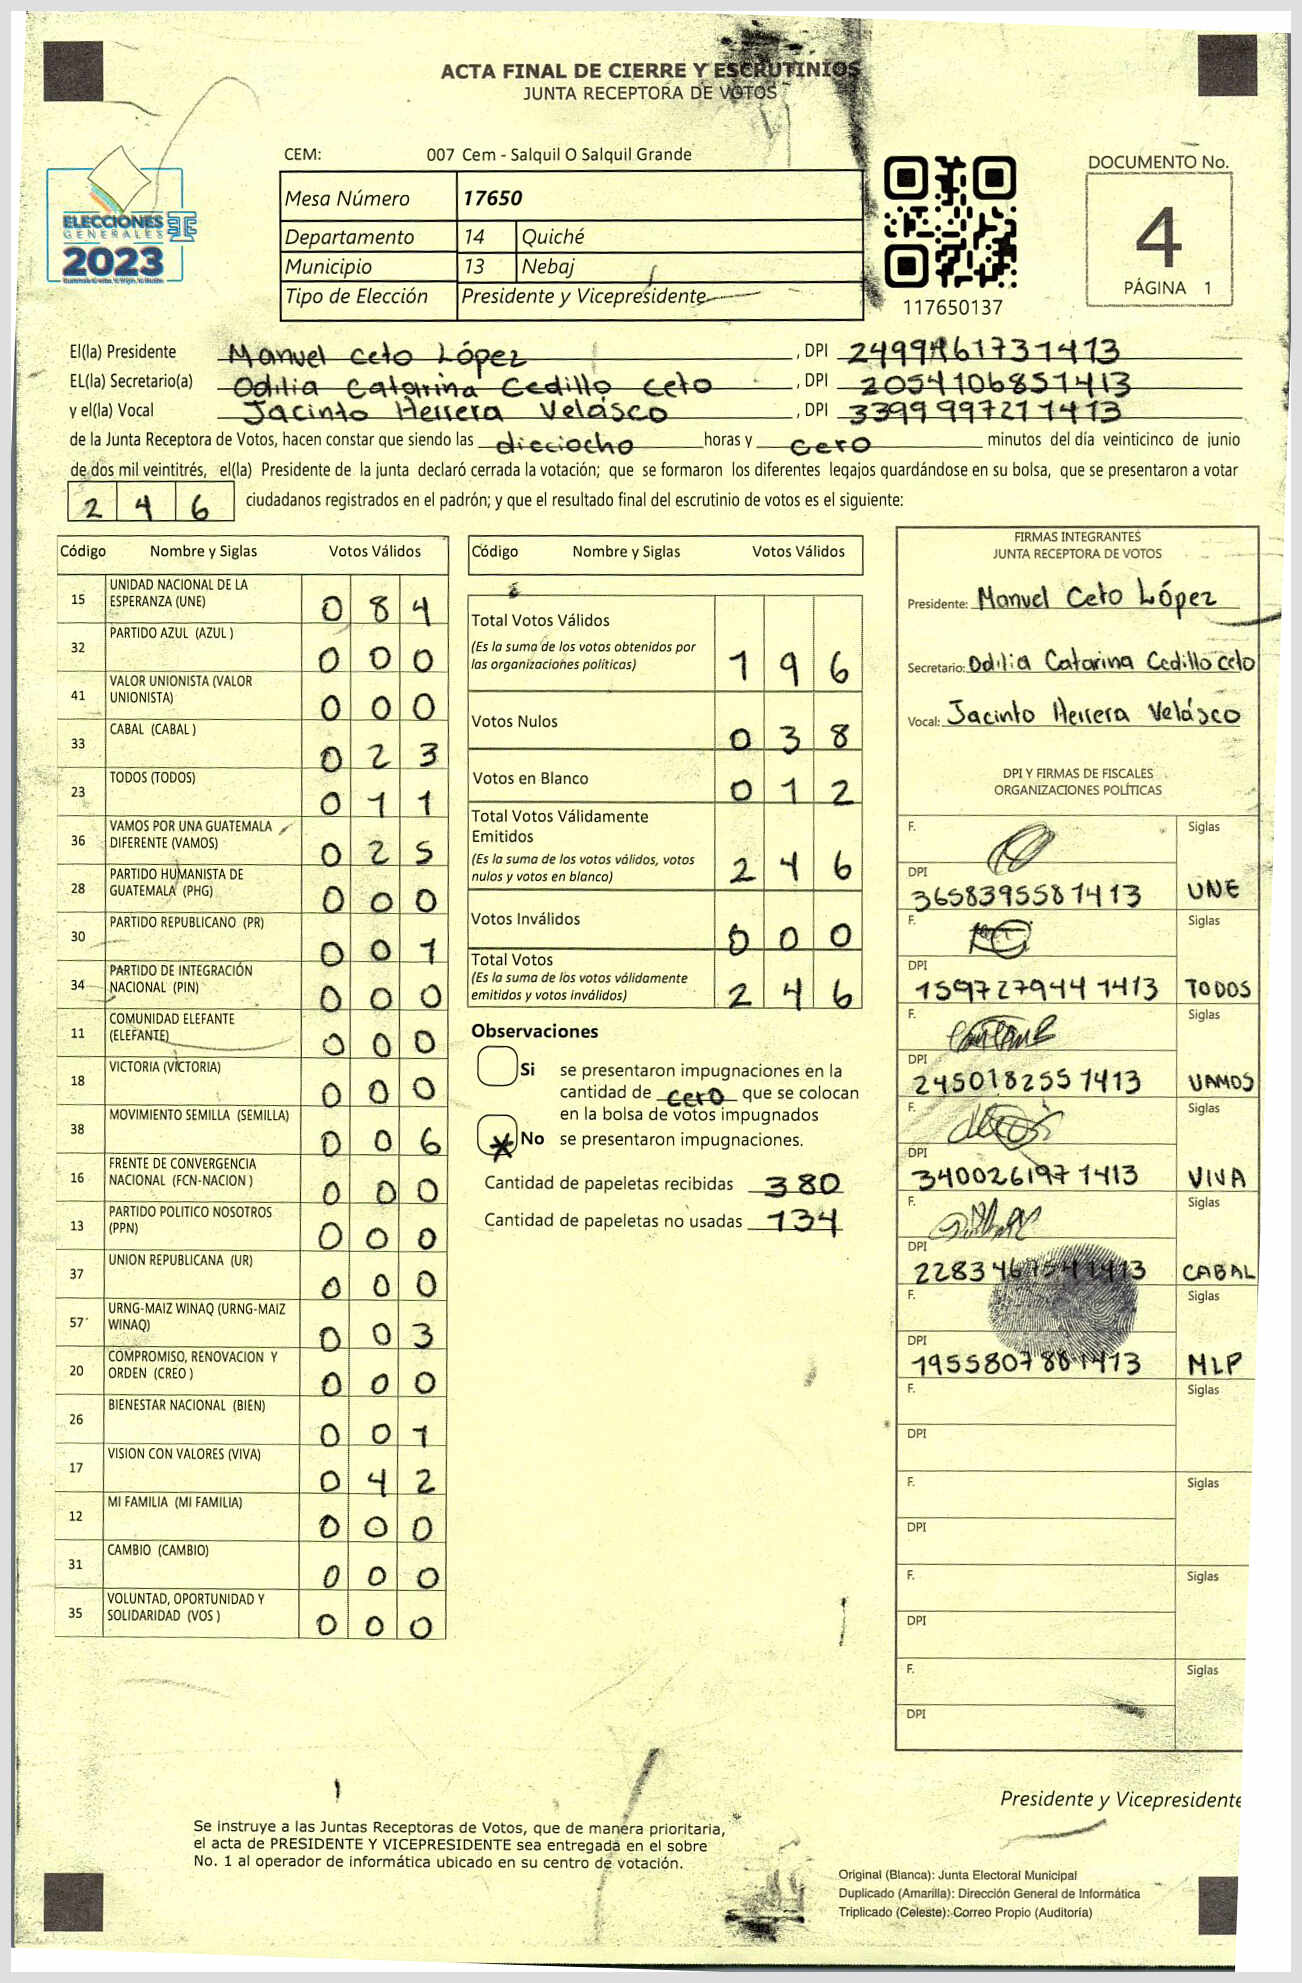 ACTA FINAL DE CIERRE Y ESCRUTINIOS
JUNTA RECEPTORA DE VOTOS
CEM: 007 Cem - Salquil O Salquil Grande
ELECCIONES
GENERALES
2023
Mesa Número 17650
Departamento 14 Quiché
Municipio 13 Nebaj
Tipo de Elección Presidente y Vicepresidente
117650137
DOCUMENTO No.
4
PÁGINA 1
El(la) Presidente Manuel Ceto López , DPI
EL(la) Secretario(a) Odilia Catarina Cedillo Ceto , DPI 2054106851413
y el(la) Vocal Jacinto Herrera Velásco , DPI 3399997211413
de la Junta Receptora de Votos, hacen constar que siendo las dieciocho horas y cero minutos del día veinticinco de junio
de dos mil veintitrés, el(la) Presidente de la junta declaró cerrada la votación; que se formaron los diferentes legajos guardándose en su bolsa, que se presentaron a votar
246 ciudadanos registrados en el padrón; y que el resultado final del escrutinio de votos es el siguiente:
Código Nombre y Siglas Votos Válidos
15 UNIDAD NACIONAL DE LA ESPERANZA (UNE) 084
32 PARTIDO AZUL (AZUL ) 000
41 VALOR UNIONISTA (VALOR UNIONISTA) 000
33 CABAL (CABAL ) 023
23 TODOS (TODOS) 011
36 VAMOS POR UNA GUATEMALA DIFERENTE (VAMOS) 025
28 PARTIDO HUMANISTA DE GUATEMALA (PHG) 000
30 PARTIDO REPUBLICANO (PR) 001
34 PARTIDO DE INTEGRACIÓN NACIONAL (PIN) 000
11 COMUNIDAD ELEFANTE (ELEFANTE) 000
18 VICTORIA (VICTORIA) 000
38 MOVIMIENTO SEMILLA (SEMILLA) 006
16 FRENTE DE CONVERGENCIA NACIONAL (FCN-NACION ) 000
13 PARTIDO POLITICO NOSOTROS (PPN) 000
37 UNION REPUBLICANA (UR) 000
57 URNG-MAIZ WINAQ (URNG-MAIZ WINAQ) 003
20 COMPROMISO, RENOVACION Y ORDEN (CREO ) 000
26 BIENESTAR NACIONAL (BIEN) 001
17 VISION CON VALORES (VIVA) 042
12 MI FAMILIA (MI FAMILIA) 000
31 CAMBIO (CAMBIO) 000
35 VOLUNTAD, OPORTUNIDAD Y SOLIDARIDAD (VOS ) 000
Código Nombre y Siglas Votos Válidos
Total Votos Válidos
(Es la suma de los votos obtenidos por
las organizaciones políticas) 196
Votos Nulos 038
Votos en Blanco 012
Total Votos Válidamente
Emitidos
(Es la suma de los votos válidos, votos
nulos y votos en blanco) 246
Votos Inválidos 000
Total Votos
(Es la suma de los votos válidamente
emitidos y votos inválidos) 246
Observaciones
Si se presentaron impugnaciones en la
cantidad de cero que se colocan
en la bolsa de votos impugnados
No se presentaron impugnaciones.
Cantidad de papeletas recibidas 380
Cantidad de papeletas no usadas 134
FIRMAS INTEGRANTES
JUNTA RECEPTORA DE VOTOS
Presidente: Manuel Ceto López
Secretario: Odilia Catarina Cedillo ceto
Vocal: Jacinto Herrera Velásco
DPI Y FIRMAS DE FISCALES
ORGANIZACIONES POLÍTICAS
F. Siglas
DPI
3658395581413 UNE
F. Siglas
DPI
1597279441413 TODOS
F. Siglas
DPI
2450182551413 VAMOS
F. Siglas
DPI
3400261971413 VIVA
F. Siglas
DPI
CABAL
F. Siglas
DPI
MLP
F. Siglas
DPI
F. Siglas
DPI
F. Siglas
DPI
F. Siglas
DPI
Presidente y Vicepresidente
Se instruye a las Juntas Receptoras de Votos, que de manera prioritaria,
el acta de PRESIDENTE Y VICEPRESIDENTE sea entregada en el sobre
No. 1 al operador de informática ubicado en su centro de votación.
Original (Blanca): Junta Electoral Municipal
Duplicado (Amarilla): Dirección General de Informática
Triplicado (Celeste): Correo Propio (Auditoría)